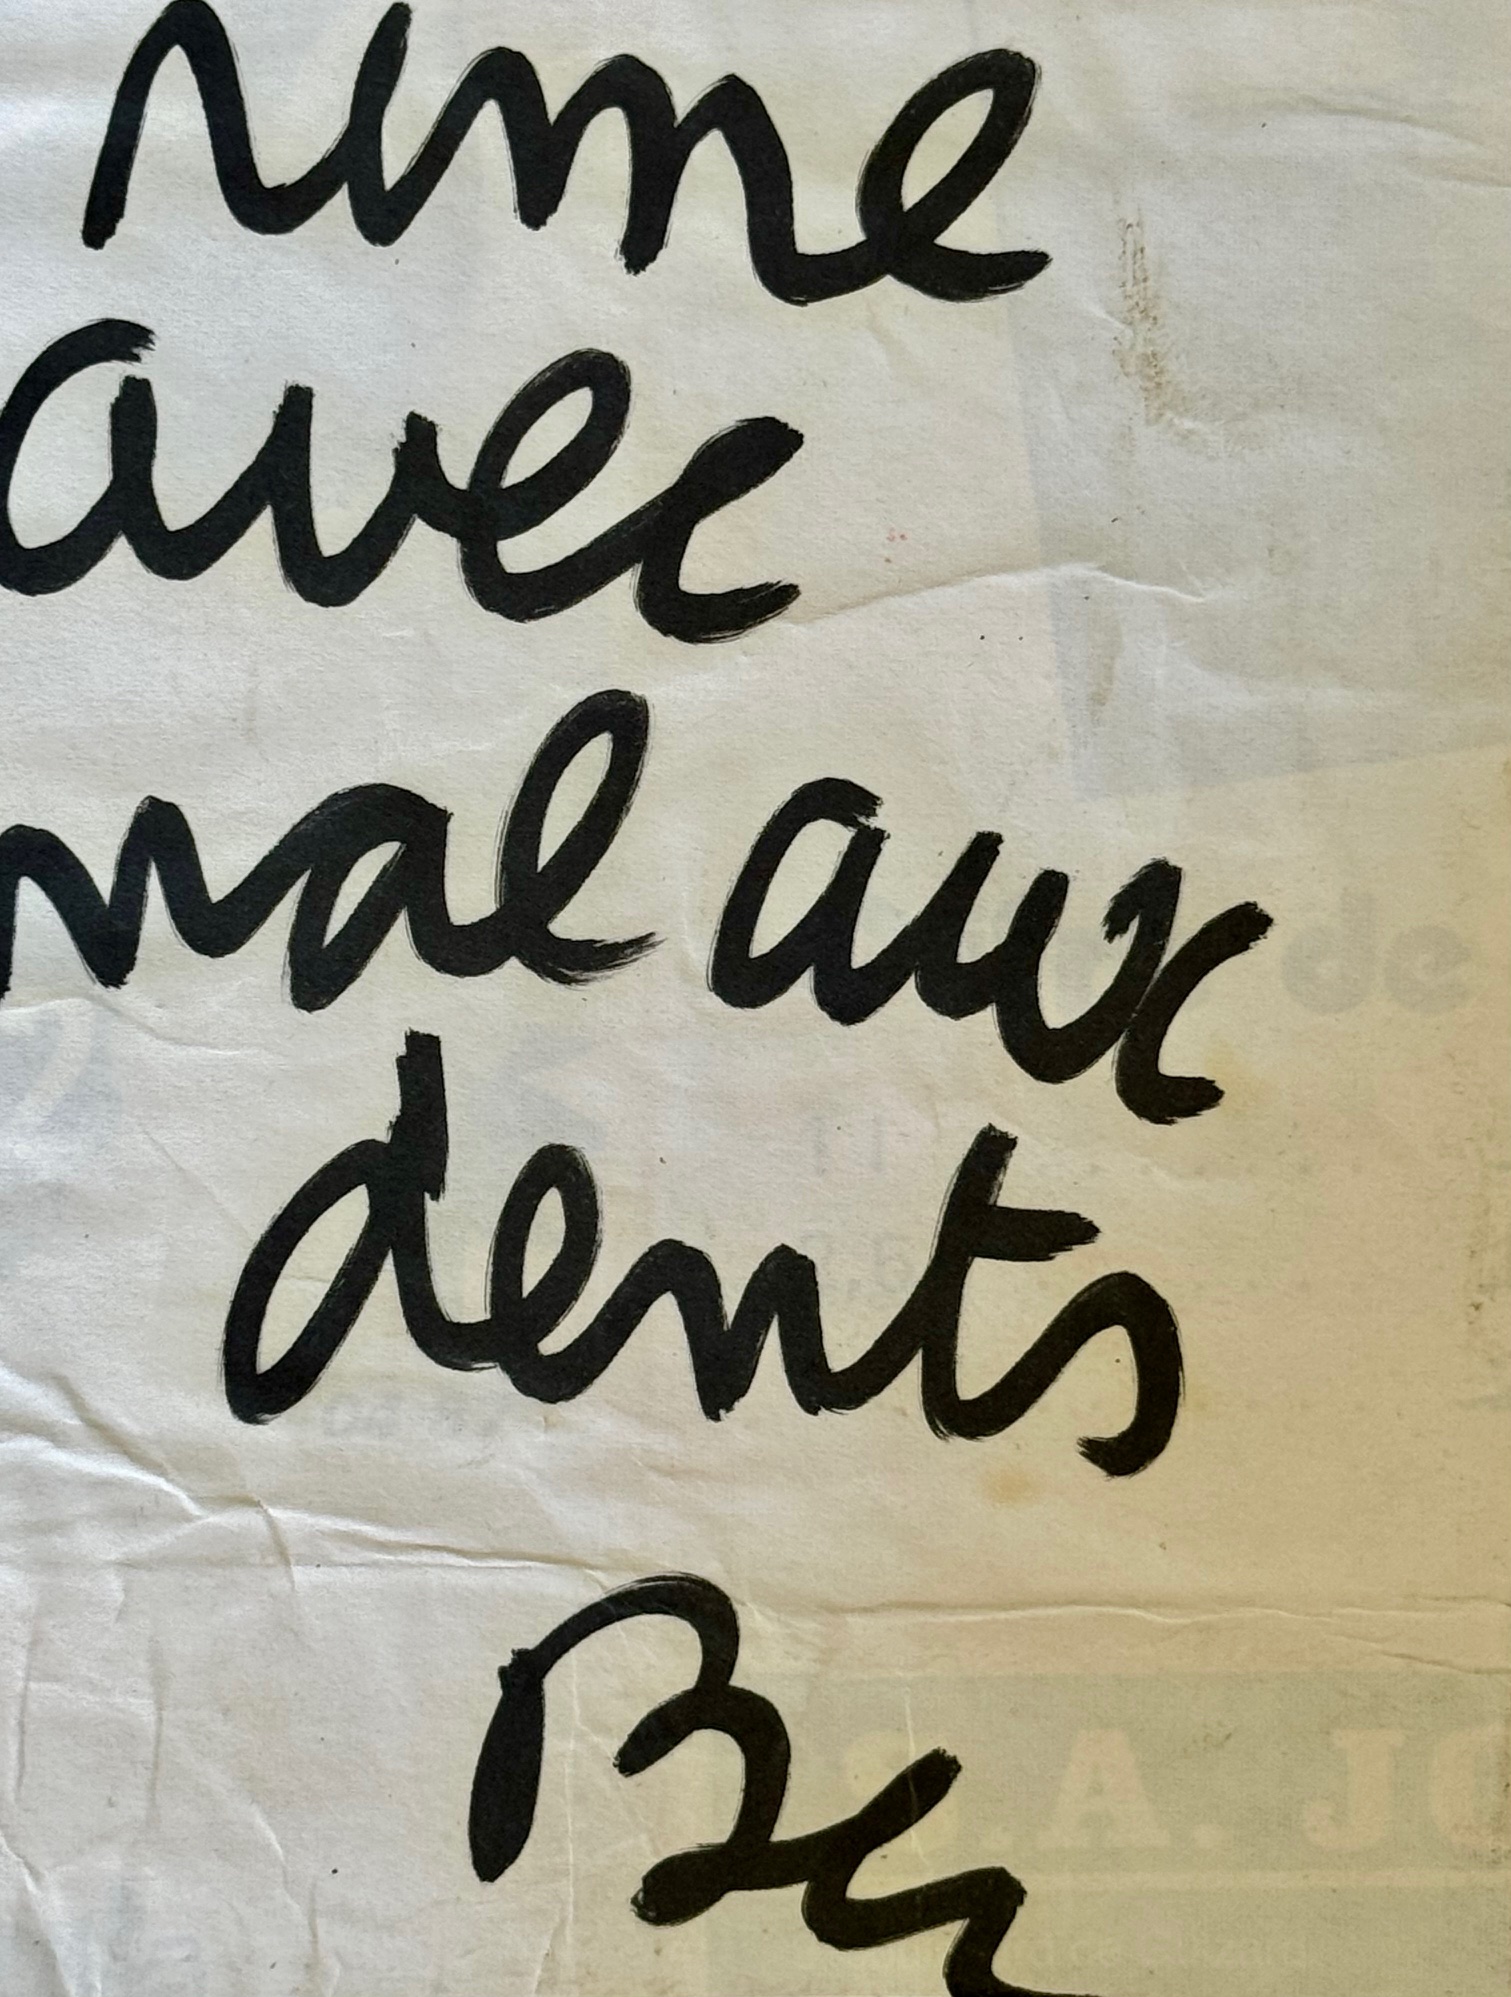 rime
avec
mal aux
dents
Ben